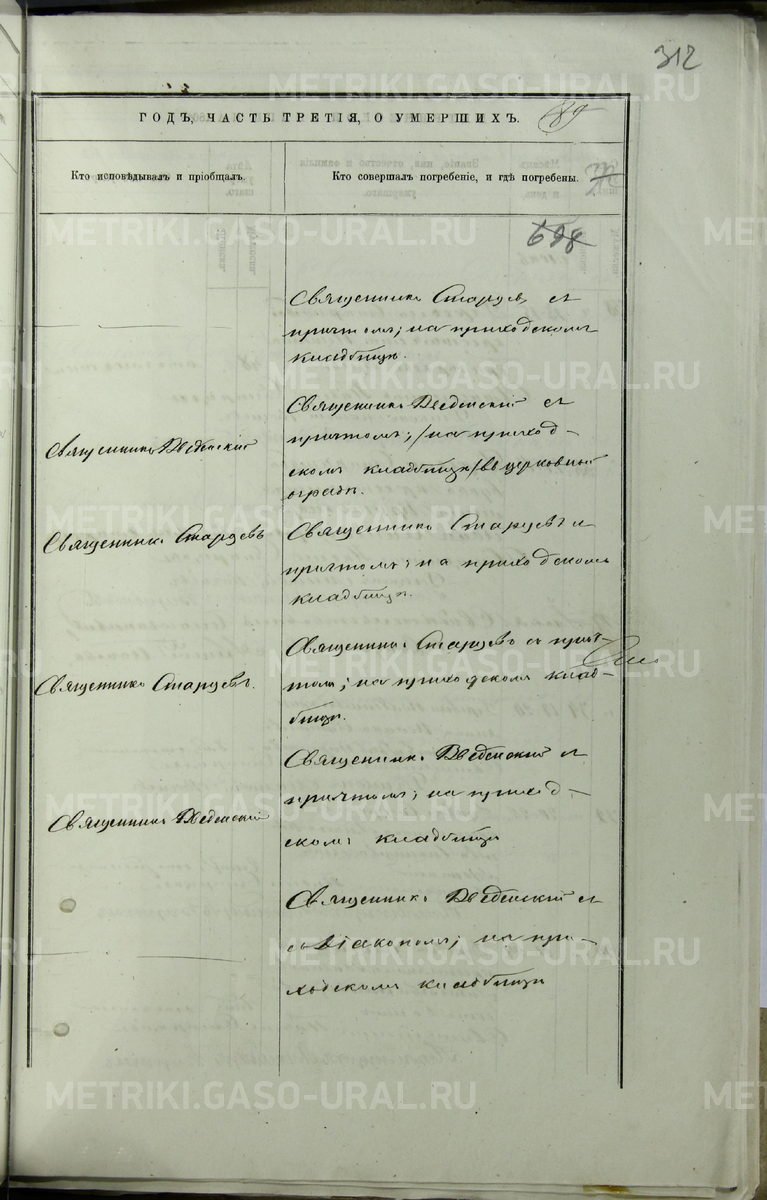 312
ГОДЪ, ЧАСТЬ ТРЕТІЯ, О УМЕРШИХЪ.
89
Кто исповѣдывалъ и пріобщалъ.
Кто совершалъ погребеніе, и гдѣ погребены.
698
Священникъ Старцев съ
причтомъ; на приходскомъ
кладбищѣ.
Священникъ Введенскій
Священникъ Введенскій съ
причтомъ; /на приход-
скомъ кладбищѣ/ въ церковной
оградѣ.
Священникъ Старцевъ
Священникъ Старцевъ съ
причтомъ; на приходскомъ
кладбищѣ.
Священникъ Старцевъ.
Священникъ Старцевъ съ прич-
томъ; на приходскомъ клад-
бищѣ.
Священникъ Введенскій
Священникъ Введенскій съ
причтомъ; на приход-
скомъ кладбищѣ
Священникъ Введенскій съ
діакономъ; на при-
ходскомъ кладбищѣ
METRIKI.GASO-URAL.RU